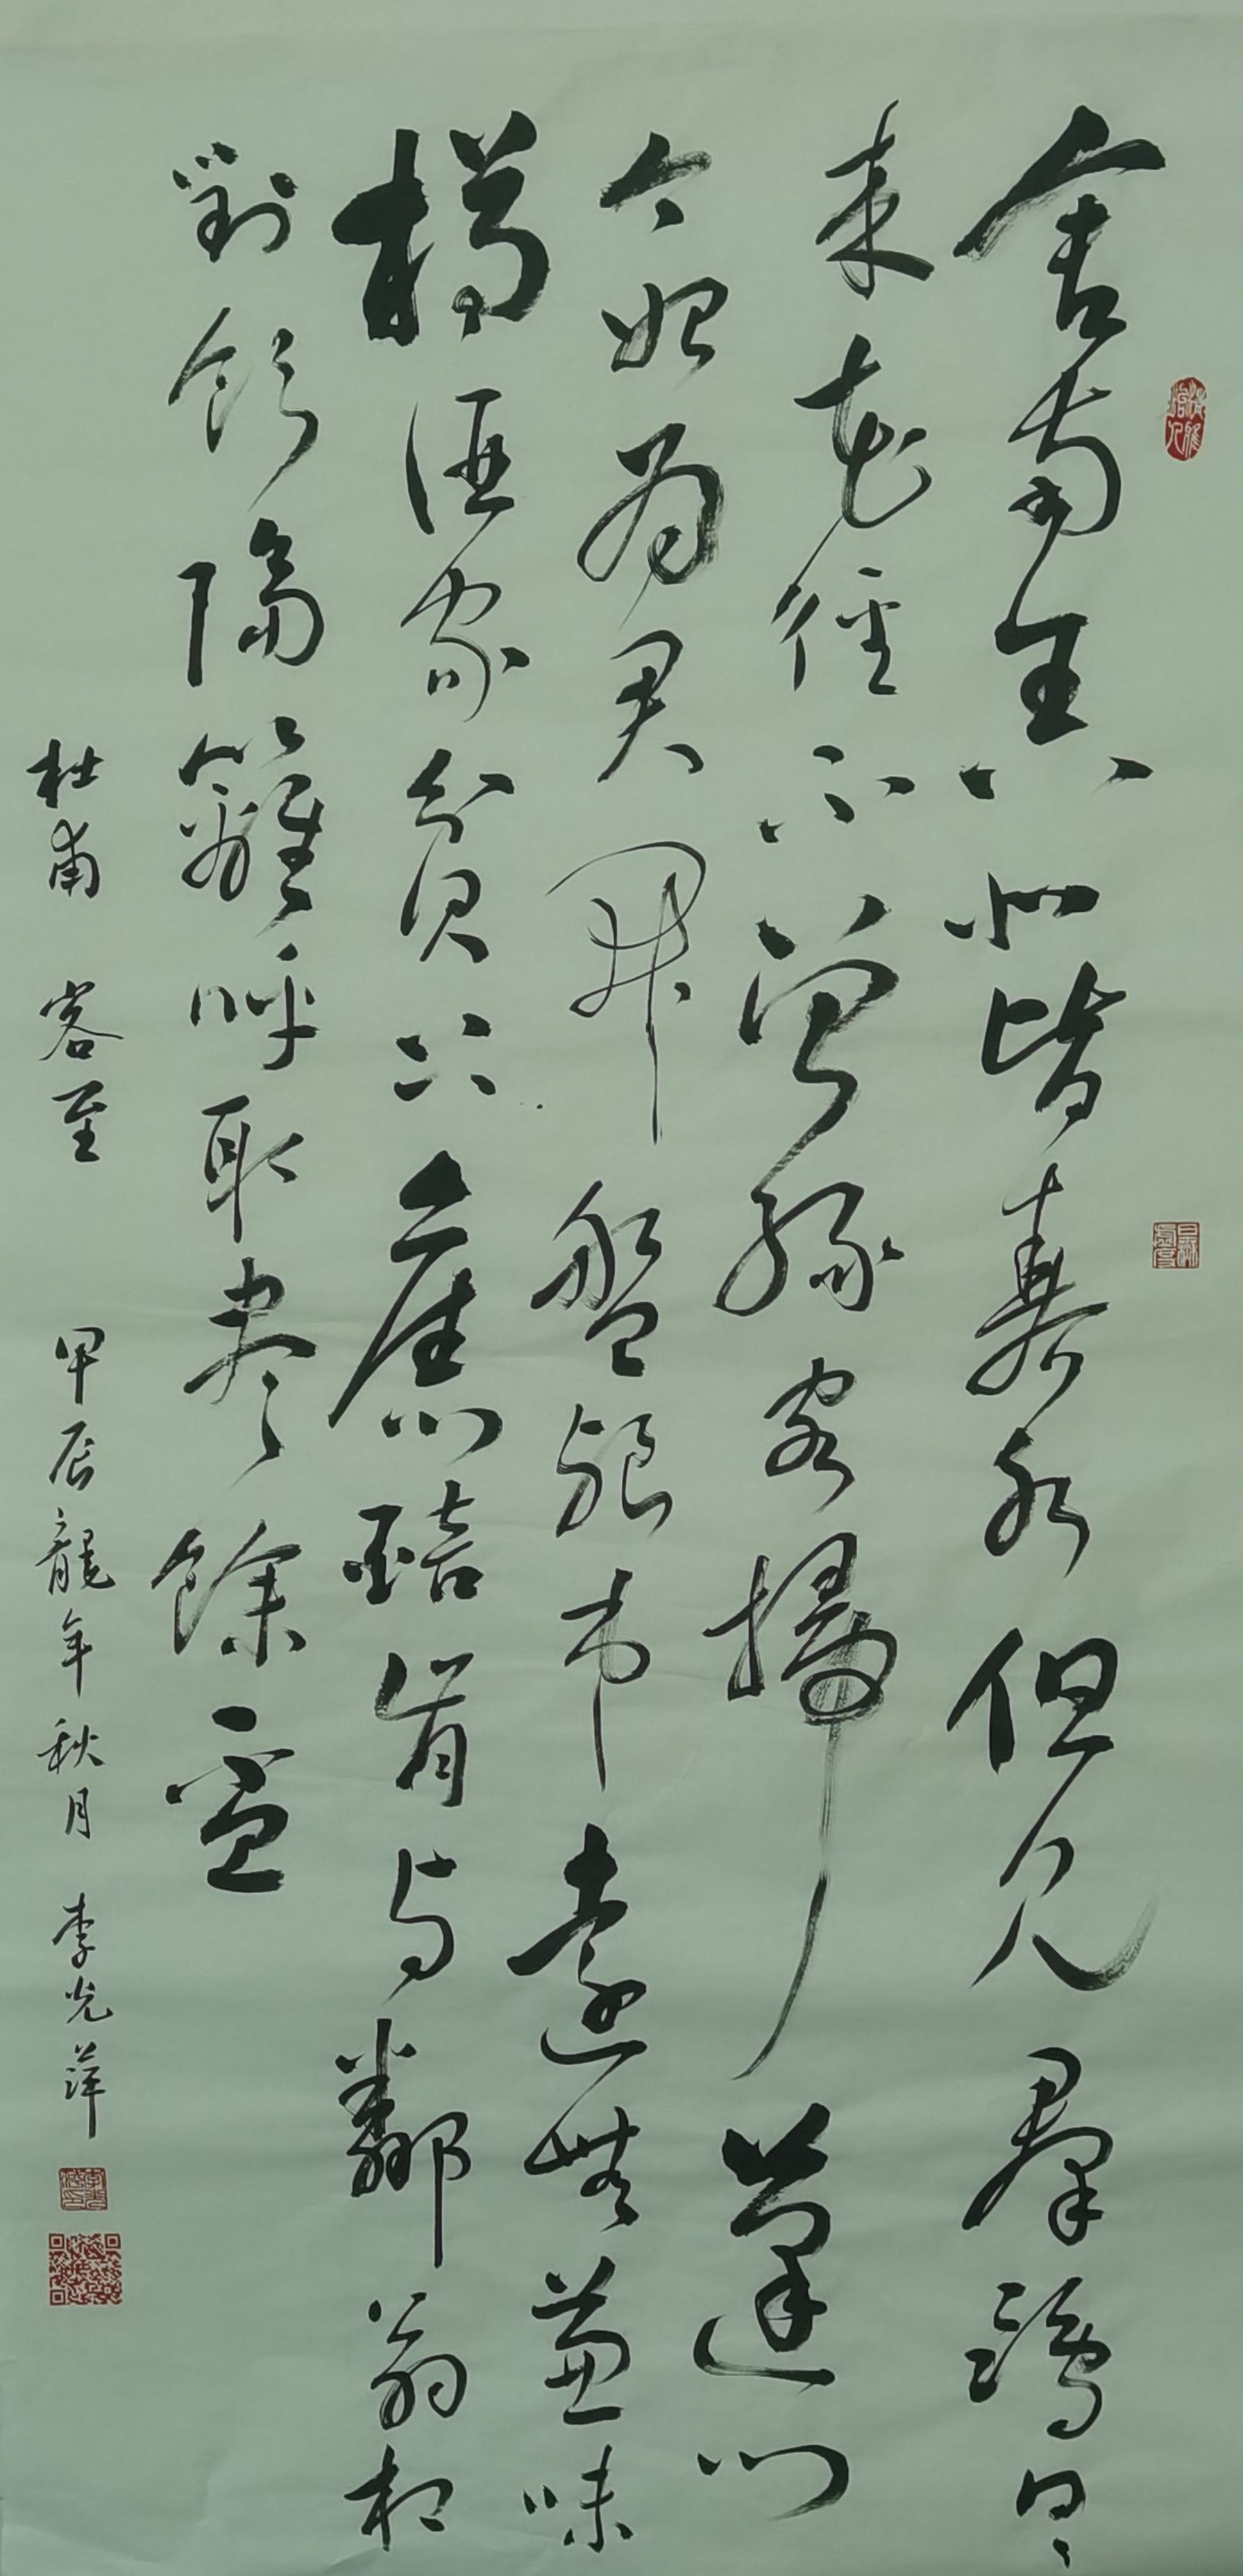 舍南舍北皆春水但見群鷗日日
來花徑不曾緣客掃蓬門
今始為君開盤飧市遠無兼味
樽酒家貧只舊醅肯与鄰翁相
對飲隔籬呼取盡餘盃
杜甫 客至 甲辰龍年秋月 李光萍